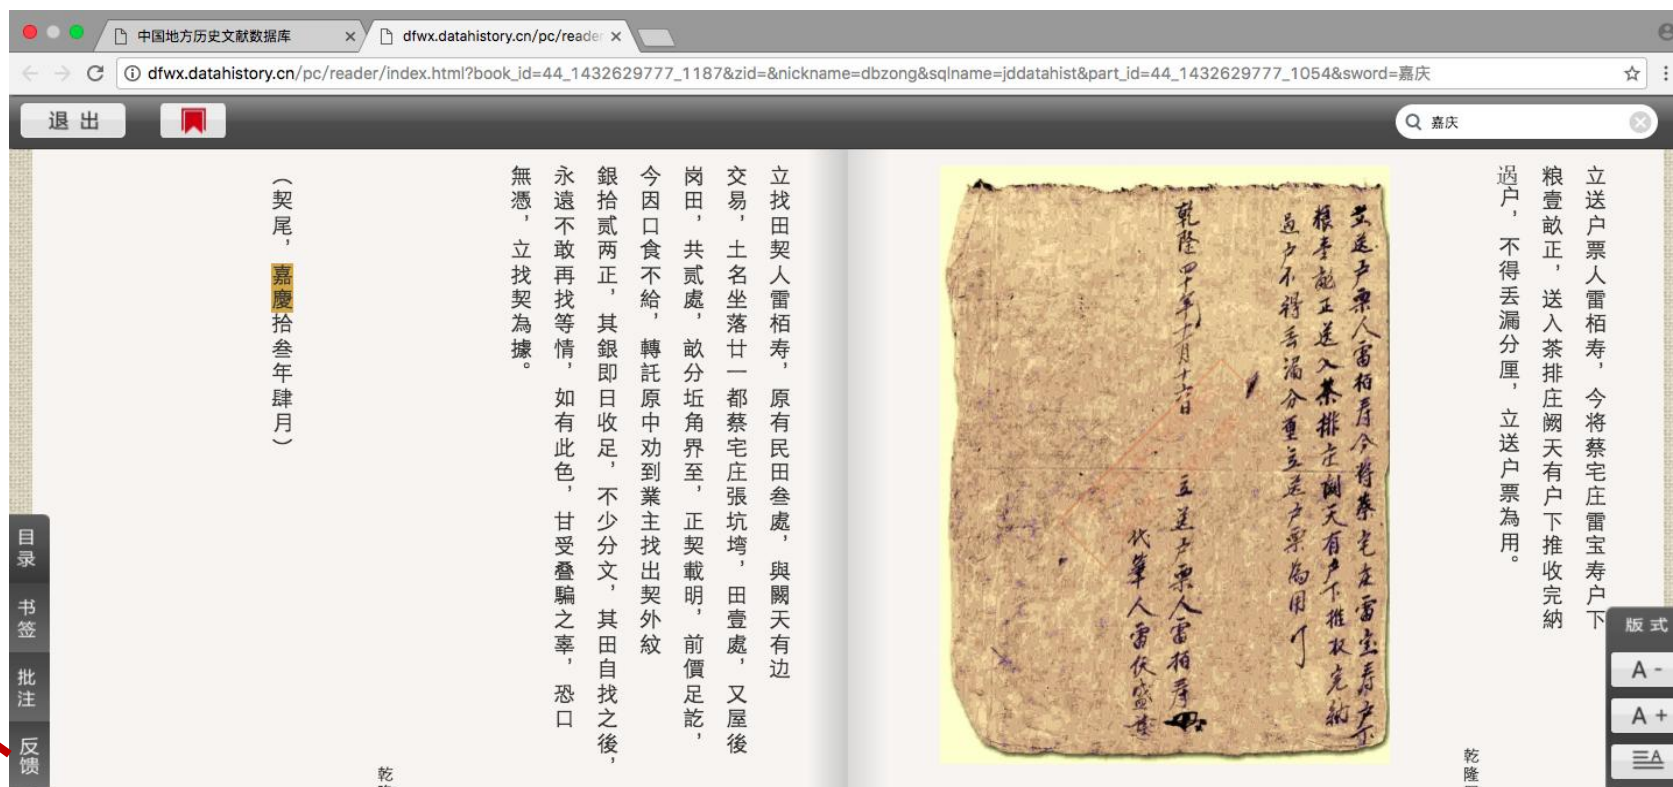 中国地方历史文献数据库
dfwx.datahistory.cn/pc/reade
dfwx.datahistory.cn/pc/reader/index.html?book_id=44_1432629777_1187&zid=&nickname=dbzong&sqlname=jddatahist&part_id=44_1432629777_1054&sword=嘉庆
退出
嘉庆
立送户票人雷栢寿，今将蔡宅庄雷宝寿户下
粮壹畝正，送入茶排庄阙天有户下推收完納
過户，不得丢漏分厘，立送户票為用。
乾隆
立送户票人雷栢寿今将蔡宅庄雷宝寿户下
粮壹畝正送入茶排庄闕天有户下推收完納
過户不得丢漏分厘立送户票為用
乾隆四十年十一月十六日 立送户票人雷栢寿
代筆人雷伏盛
立找田契人雷栢寿，原有民田叁處，與闕天有边
交易，土名坐落廿一都蔡宅庄張坑塆，田壹處，又屋後
岗田，共贰處，畝分坵角界至，正契載明，前價足訖，
今因口食不給，轉託原中劝到業主找出契外紋
銀拾贰两正，其銀即日收足，不少分文，其田自找之後，
永遠不敢再找等情，如有此色，甘受叠騙之辜，恐口
無憑，立找契為據。
乾
（契尾，嘉慶拾叁年肆月）
目录
书签
批注
反馈
版式
A -
A +
A